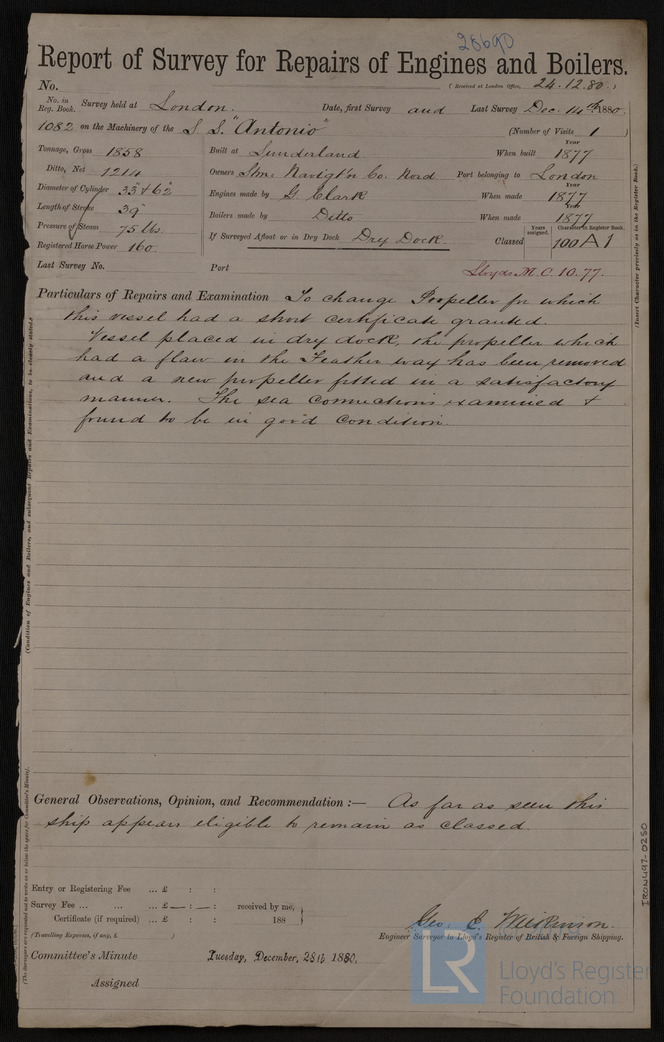 28690
Report of Survey for Repairs of Engines and Boilers.
No. (Received at London Office, 24.12.80.)
No. in Reg. Book. Survey held at London. Date, first Survey and Last Survey Dec. 14th 1880.
1082 on the Machinery of the S S. "Antonio" (Number of Visits 1)
Tonnage, Gross 1858
Ditto, Net 1214
Diameter of Cylinder 33 & 62
Length of Stroke 39
Pressure of Steam 75 lbs.
Registered Horse Power 160
Built at Sunderland When built Year 1877
Owners Port belonging to London
Engines made by G. Clark When made Year 1877
Boilers made by Ditto When made Year 1877
If Surveyed Afloat or in Dry Dock Dry Dock. Classed Years assigned. Character in Register Book. 100 A 1
Last Survey No. Port Lloyds M.C. 10.77.
Particulars of Repairs and Examination To change Propeller for which
this vessel had a short certificate granted.
Vessel placed in dry dock, the propeller which
had a flaw in the Feather way has been removed
and a new propeller fitted in a satisfactory
manner. The sea connections examined &
found to be in good condition.
General Observations, Opinion, and Recommendation :— As far as seen this
ship appears eligible to remain as classed.
Entry or Registering Fee ... £ : :
Survey Fee ... ... ... £ — : — : received by me,
Certificate (if required) ... £ : : 188
(Travelling Expenses, if any, £ )
Geo. C. Wilkinson.
Engineer Surveyor to Lloyd's Register of British & Foreign Shipping.
Committee's Minute Tuesday, December, 28th 1880.
Assigned
(Insert Character precisely as in the Register Book.)
IRON497-0280
LR
Lloyd's Register
Foundation